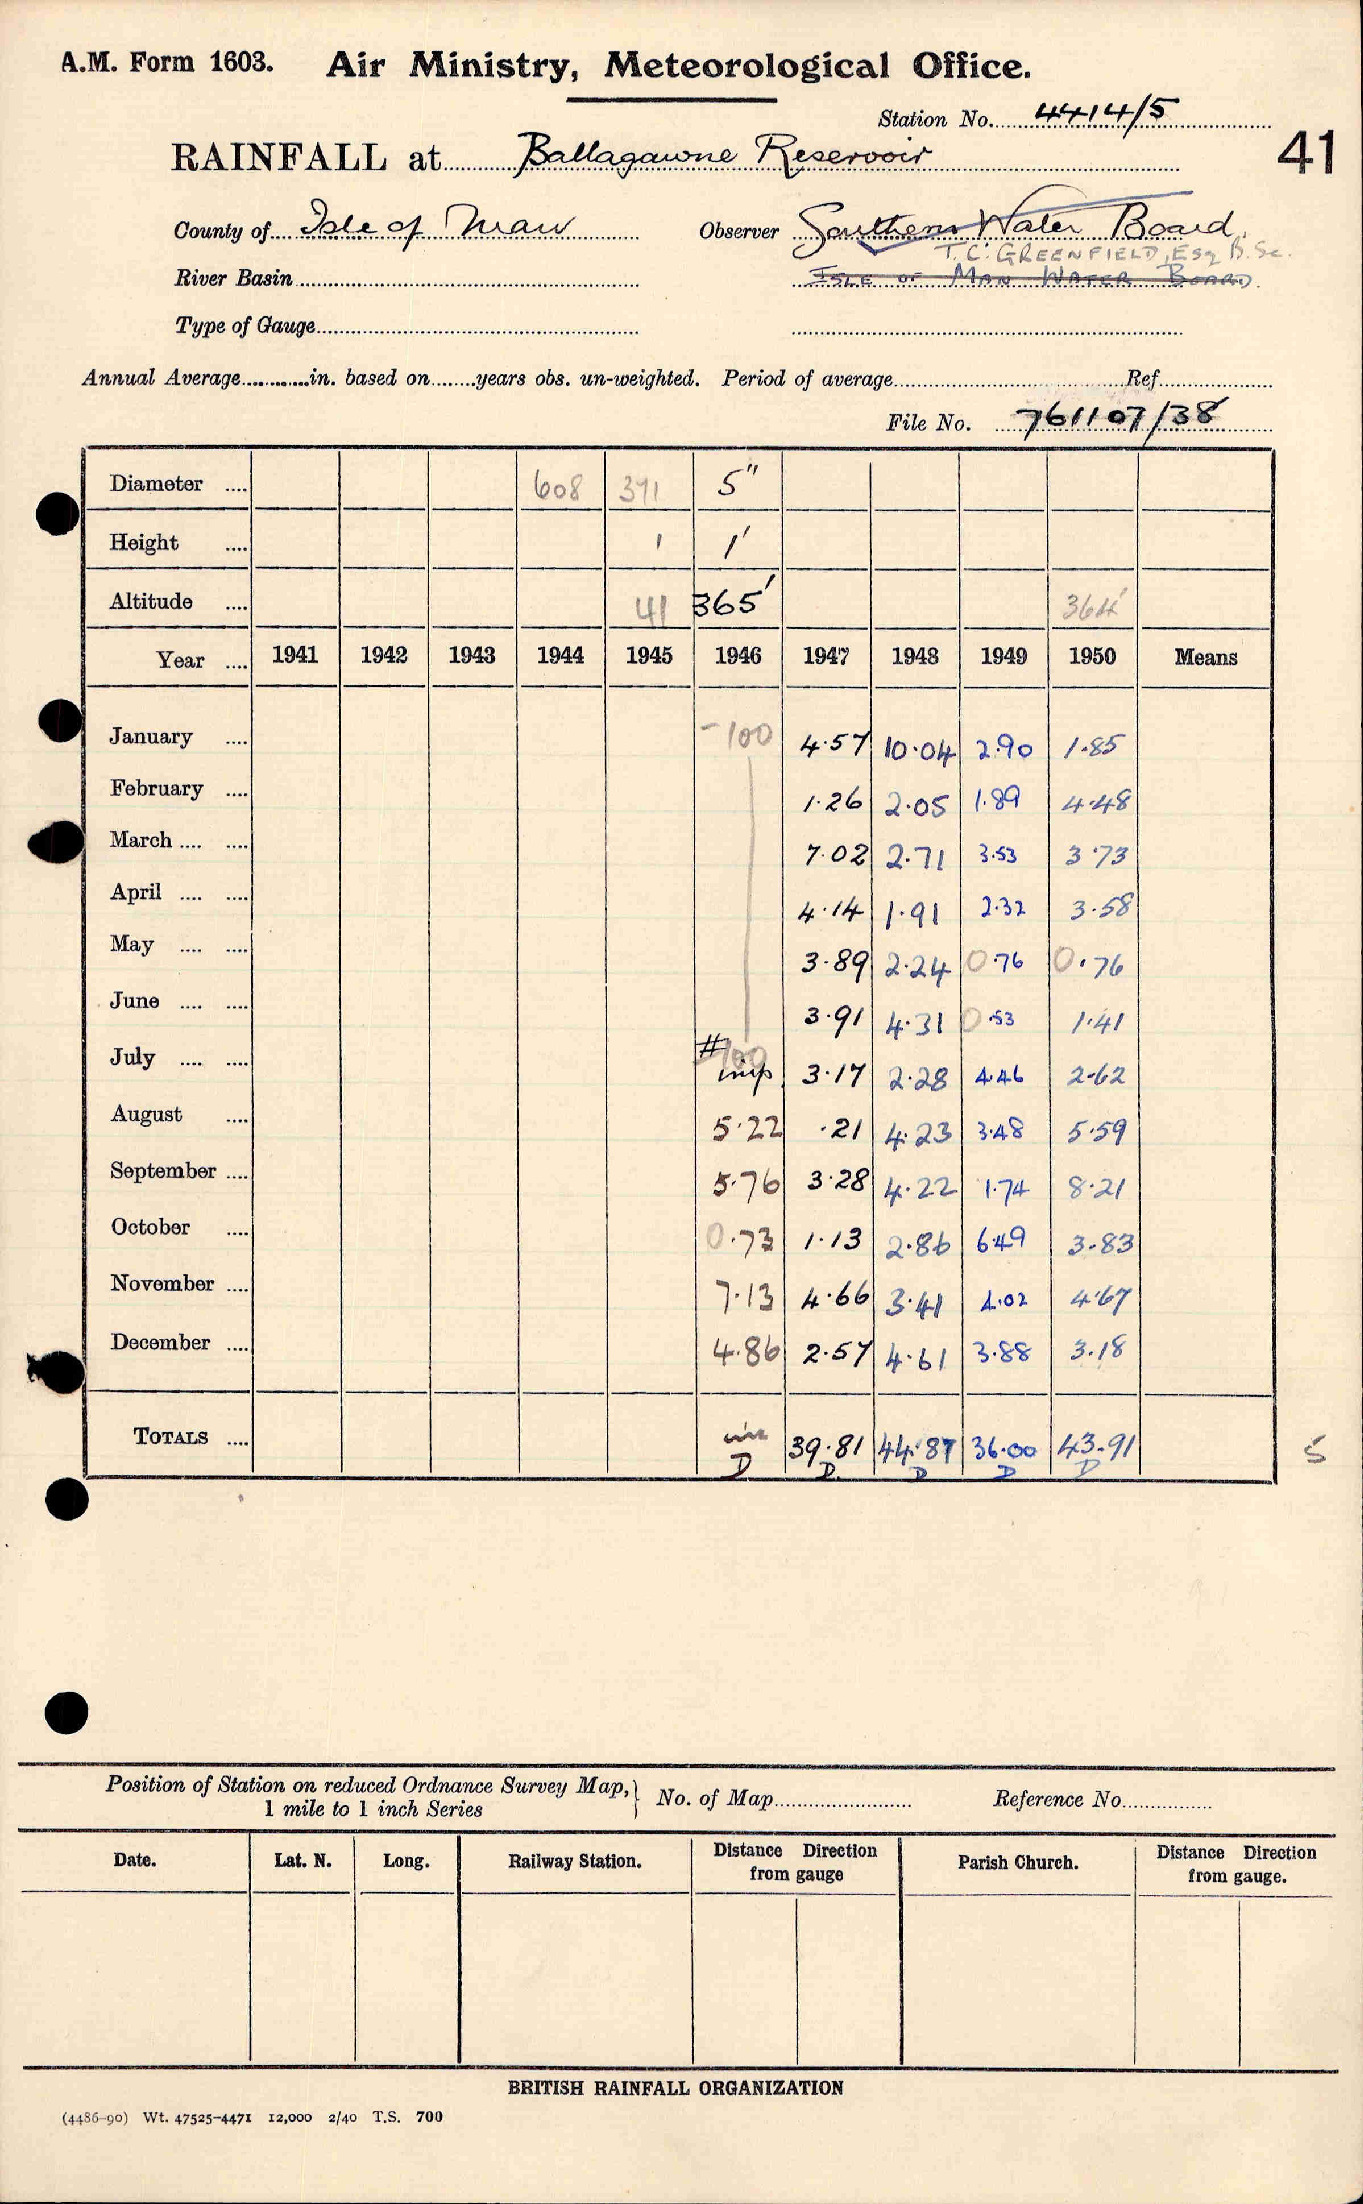 A.M. Form 1603. Air Ministry, Meteorological Office.
Station No. 4414/5
41
RAINFALL at Ballagawne Reservoir
County of Isle of Man Observer Southern Water Board.
T.C. GREENFIELD, Esq B.Sc.
River Basin ISLE OF MAN WATER BOARD.
Type of Gauge
Annual Average in. based on years obs. un-weighted. Period of average Ref.
File No. 761107/38
Diameter .... 608 371 5"
Height .... 1 1'
Altitude .... 41 365' 364'
Year .... 1941 1942 1943 1944 1945 1946 1947 1948 1949 1950 Means
January .... -100 4.57 10.04 2.90 1.85
February .... 1.26 2.05 1.89 4.48
March .... .... 7.02 2.71 3.53 3.73
April .... .... 4.14 1.91 2.32 3.58
May .... .... 3.89 2.24 0.76 0.76
June .... .... 3.91 4.31 0.53 1.41
July .... .... # 100 imp. 3.17 2.28 4.46 2.62
August .... 5.22 .21 4.23 3.48 5.59
September .... 5.76 3.28 4.22 1.74 8.21
October .... 0.73 1.13 2.86 6.49 3.83
November .... 7.13 4.66 3.41 4.02 4.67
December .... 4.86 2.57 4.61 3.88 3.18
TOTALS .... 39.81 44.87 36.00 43.91 5
D D. D D D
Position of Station on reduced Ordnance Survey Map, } No. of Map Reference No.
1 mile to 1 inch Series
Date. Lat. N. Long. Railway Station. Distance Direction from gauge Parish Church. Distance Direction from gauge.
BRITISH RAINFALL ORGANIZATION
(4486-90) Wt. 47525-4471 12,000 2/40 T.S. 700